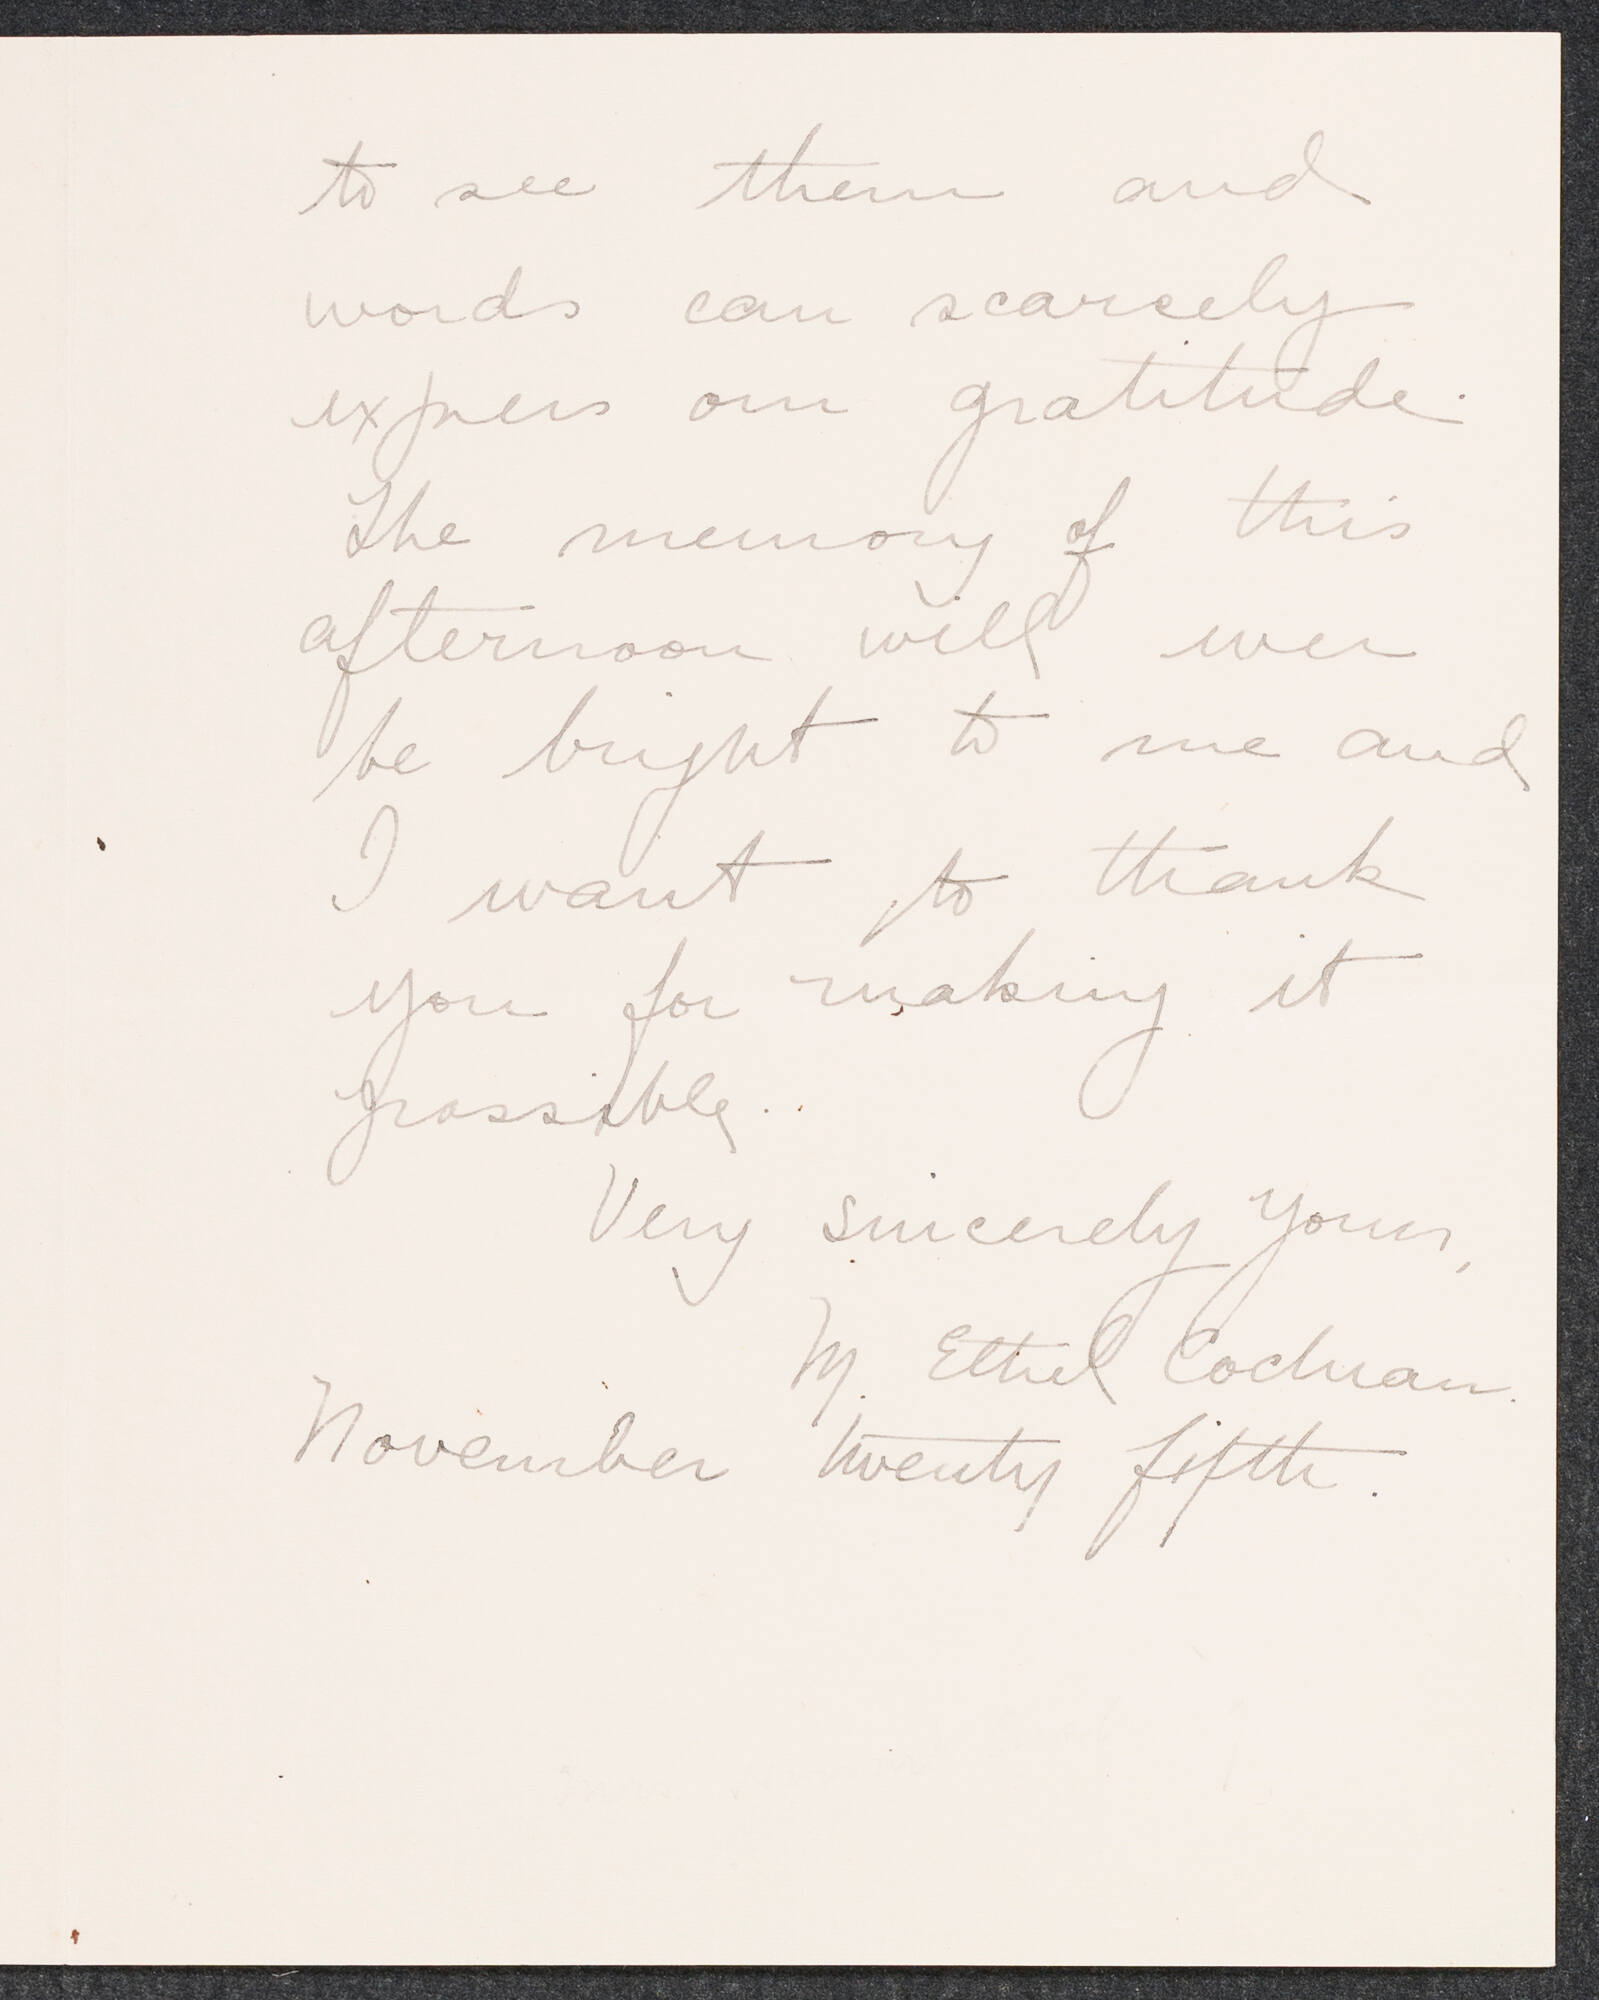 to see them and
words can scarcely
express our gratitude.
The memory of this
afternoon will ever
be bright to me and
I want to thank
you for making it
possible.
Very sincerely yours,
M. Ethel Cochran.
November twenty fifth.